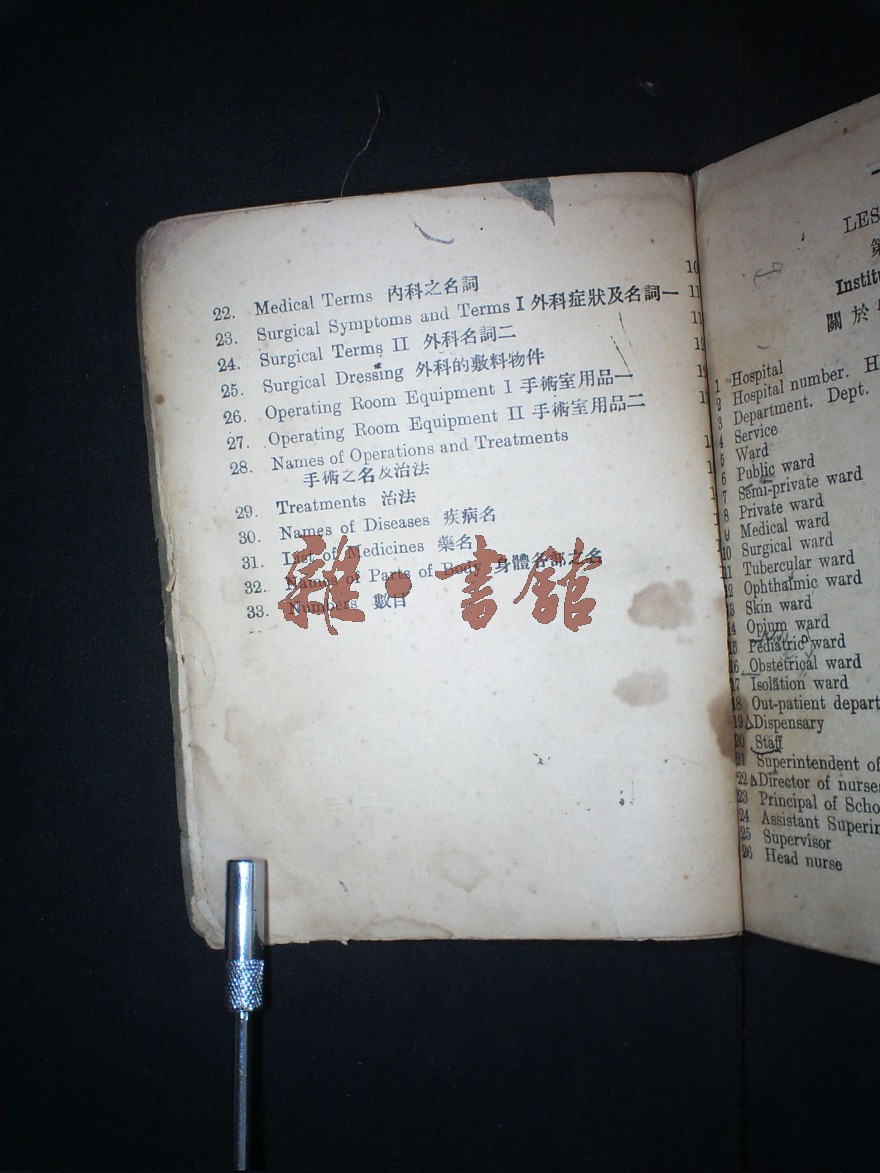 22. Medical Terms 內科之名詞 10
23. Surgical Symptoms and Terms I 外科症狀及名詞一 11
24. Surgical Terms II 外科名詞二 11
25. Surgical Dressing 外科的敷料物件
26. Operating Room Equipment I 手術室用品一
27. Operating Room Equipment II 手術室用品二
28. Names of Operations and Treatments
手術之名及治法
29. Treatments 治法
30. Names of Diseases 疾病名
31. List of Medicines 藥名
32. Names of Parts of Body 身體各部之名
33. Numbers 數目
雜·書館
LES
第
Institu
關於
1 Hospital
2 Hospital number. H
3 Department. Dept.
4 Service
5 Ward
6 Public ward
7 Semi-private ward
8 Private ward
9 Medical ward
10 Surgical ward
11 Tubercular ward
12 Ophthalmic ward
13 Skin ward
14 Opium ward
15 Pediatric ward
16 Obstetrical ward
17 Isolation ward
18 Out-patient depart
19 Dispensary
20 Staff
21 Superintendent of
22 Director of nurses
23 Principal of Scho
24 Assistant Superin
25 Supervisor
26 Head nurse